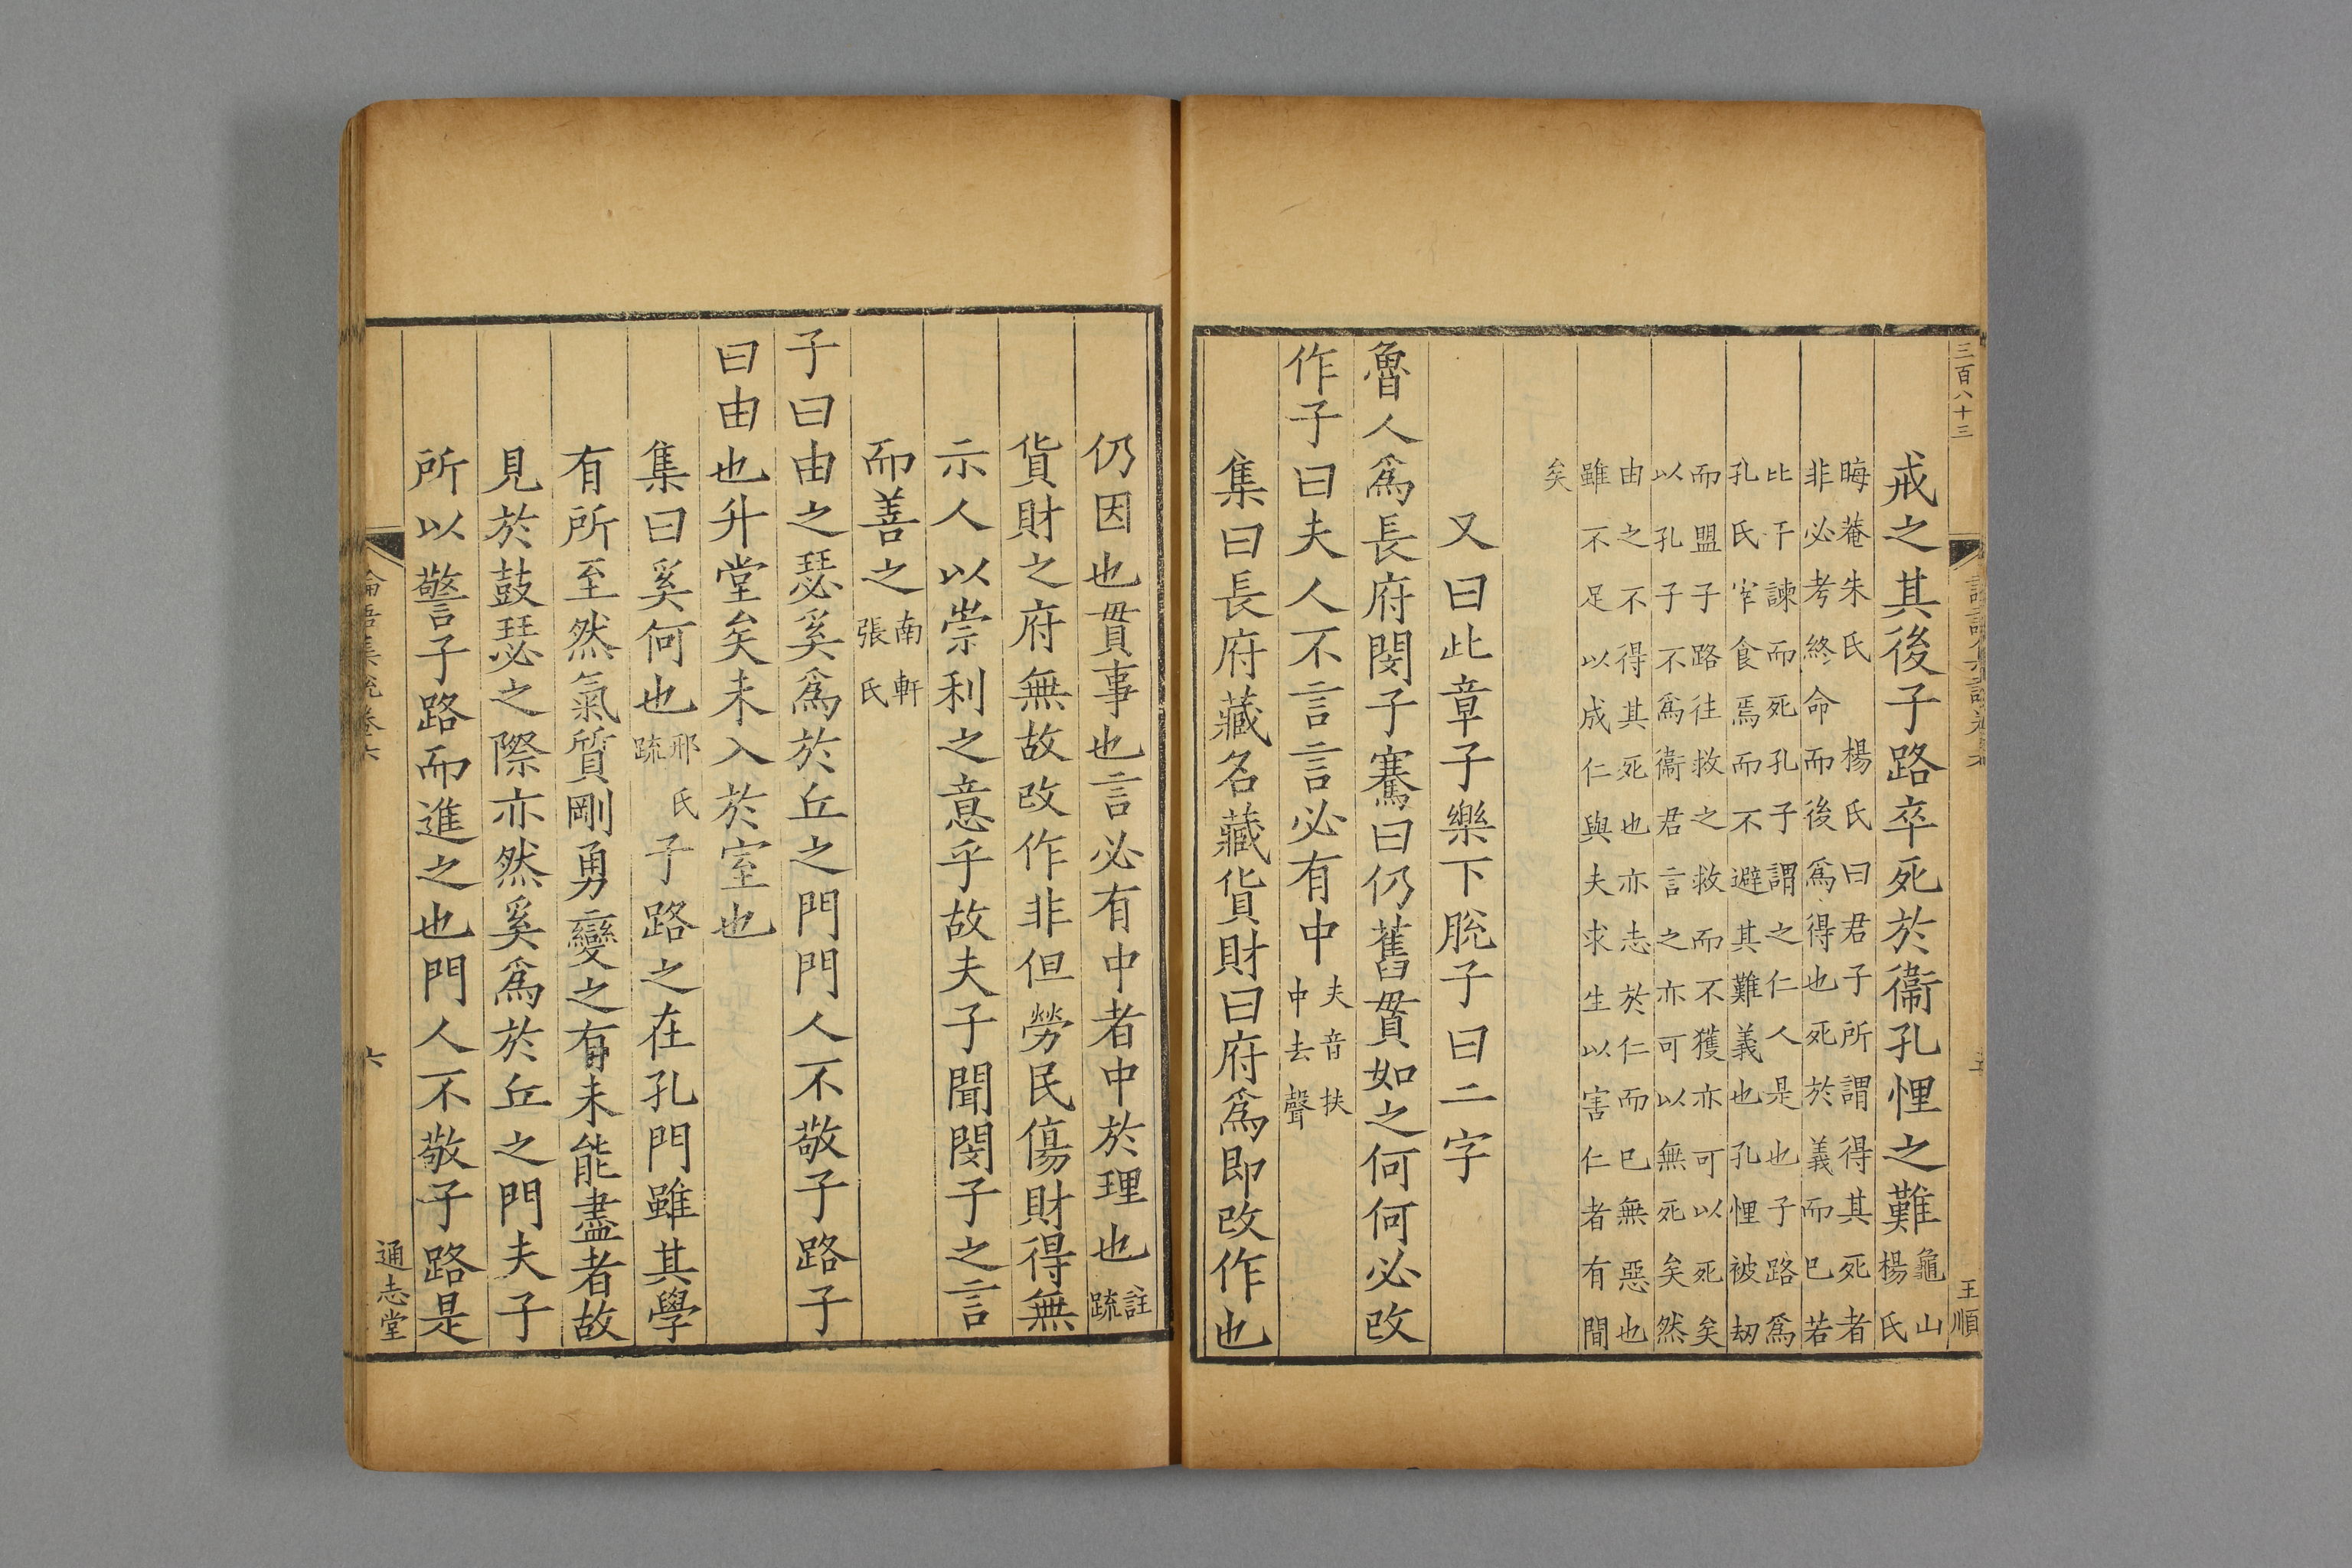 三百八十三
王順
戒之其後子路卒死於衞孔悝之難龜山楊氏
晦菴朱氏　楊氏曰君子所謂得其死者
非必考終命而後爲得也死於義而已若
比干諫而死孔子謂之仁人是也子路爲
孔氏宰食焉而不避其難義也孔悝被刼
而盟子路往救之救而不獲亦可以死矣
以孔子不爲衞君言之亦可以無死矣然
由之不得其死也亦志於仁而已無惡也
雖不足以成仁與夫求生以害仁者有間
矣
又曰此章子樂下脫子曰二字
魯人爲長府閔子騫曰仍舊貫如之何何必改
作子曰夫人不言言必有中夫音扶中去聲
集曰長府藏名藏貨財曰府爲即改作也
仍因也貫事也言必有中者中於理也註疏
貨財之府無故改作非但勞民傷財得無
示人以崇利之意乎故夫子聞閔子之言
而善之南軒張氏
子曰由之瑟奚爲於丘之門門人不敬子路子
曰由也升堂矣未入於室也
集曰奚何也邢氏疏子路之在孔門雖其學
有所至然氣質剛勇變之有未能盡者故
見於鼓瑟之際亦然奚爲於丘之門夫子
所以警子路而進之也門人不敬子路是
論語集說卷六
六
通志堂